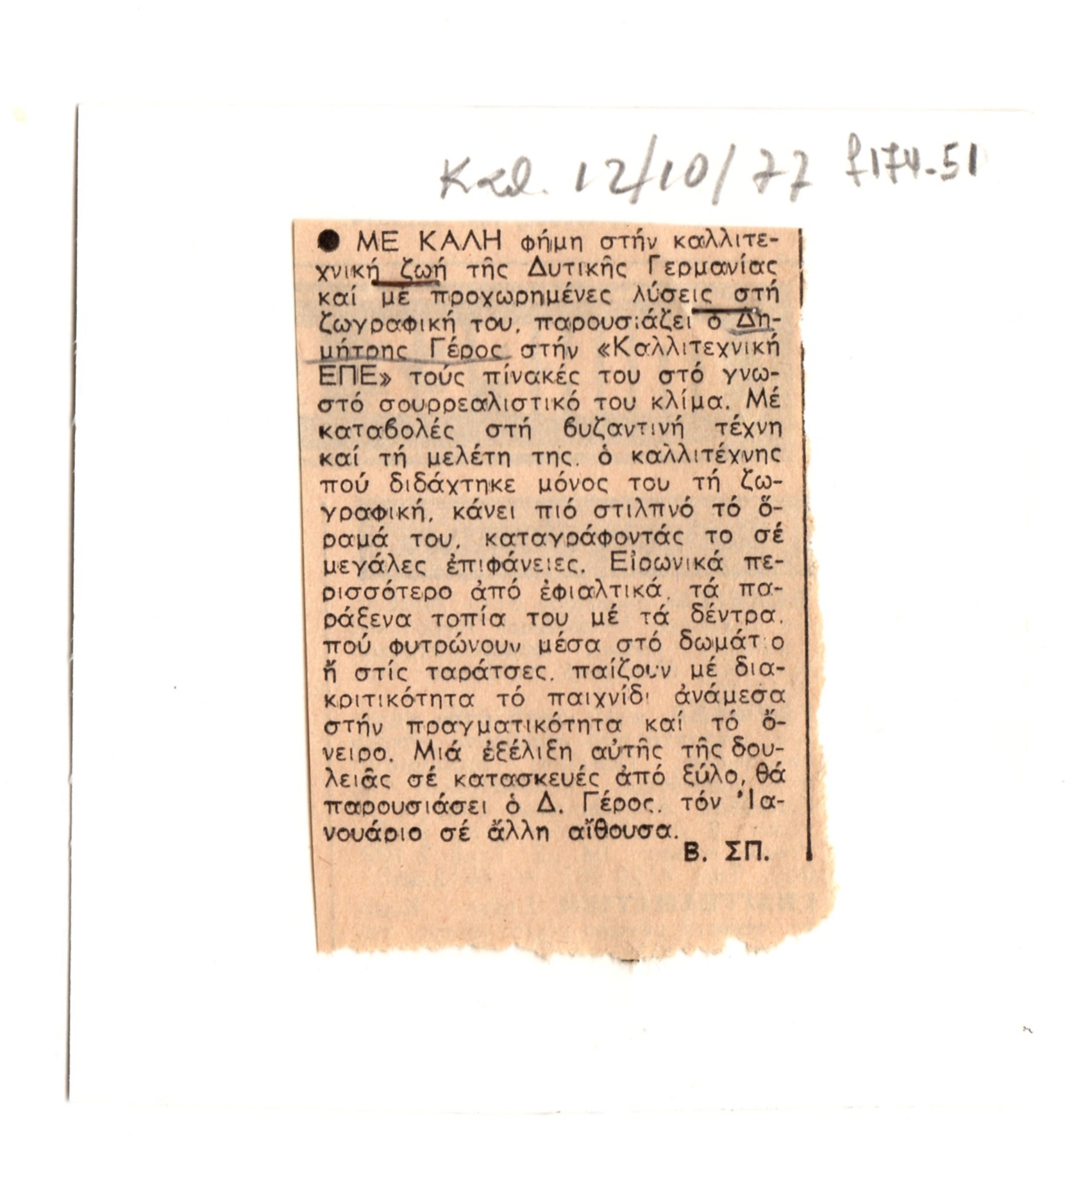 Καθ. 12/10/77 f174-51
● ΜΕ ΚΑΛΗ φήμη στήν καλλιτε-
χνική ζωή τῆς Δυτικῆς Γερμανίας
καί μέ προχωρημένες λύσεις στή
ζωγραφική του, παρουσιάζει ὁ Δη-
μήτρης Γέρος στήν «Καλλιτεχνική
ΕΠΕ» τούς πίνακές του στό γνω-
στό σουρρεαλιστικό του κλίμα. Μέ
καταβολές στή βυζαντινή τέχνη
καί τή μελέτη της, ὁ καλλιτέχνης
πού διδάχτηκε μόνος του τή ζω-
γραφική, κάνει πιό στιλπνό τό ὅ-
ραμά του, καταγράφοντάς το σέ
μεγάλες ἐπιφάνειες. Εἰρωνικά πε-
ρισσότερο ἀπό ἐφιαλτικά, τά πα-
ράξενα τοπία του μέ τά δέντρα,
πού φυτρώνουν μέσα στό δωμάτιο
ἤ στίς ταράτσες, παίζουν μέ δια-
κριτικότητα τό παιχνίδι ἀνάμεσα
στήν πραγματικότητα καί τό ὄ-
νειρο. Μιά ἐξέλιξη αὐτῆς τῆς δου-
λειᾶς σέ κατασκευές ἀπό ξύλο, θά
παρουσιάσει ὁ Δ. Γέρος, τόν Ἰα-
νουάριο σέ ἄλλη αἴθουσα.
Β. ΣΠ.